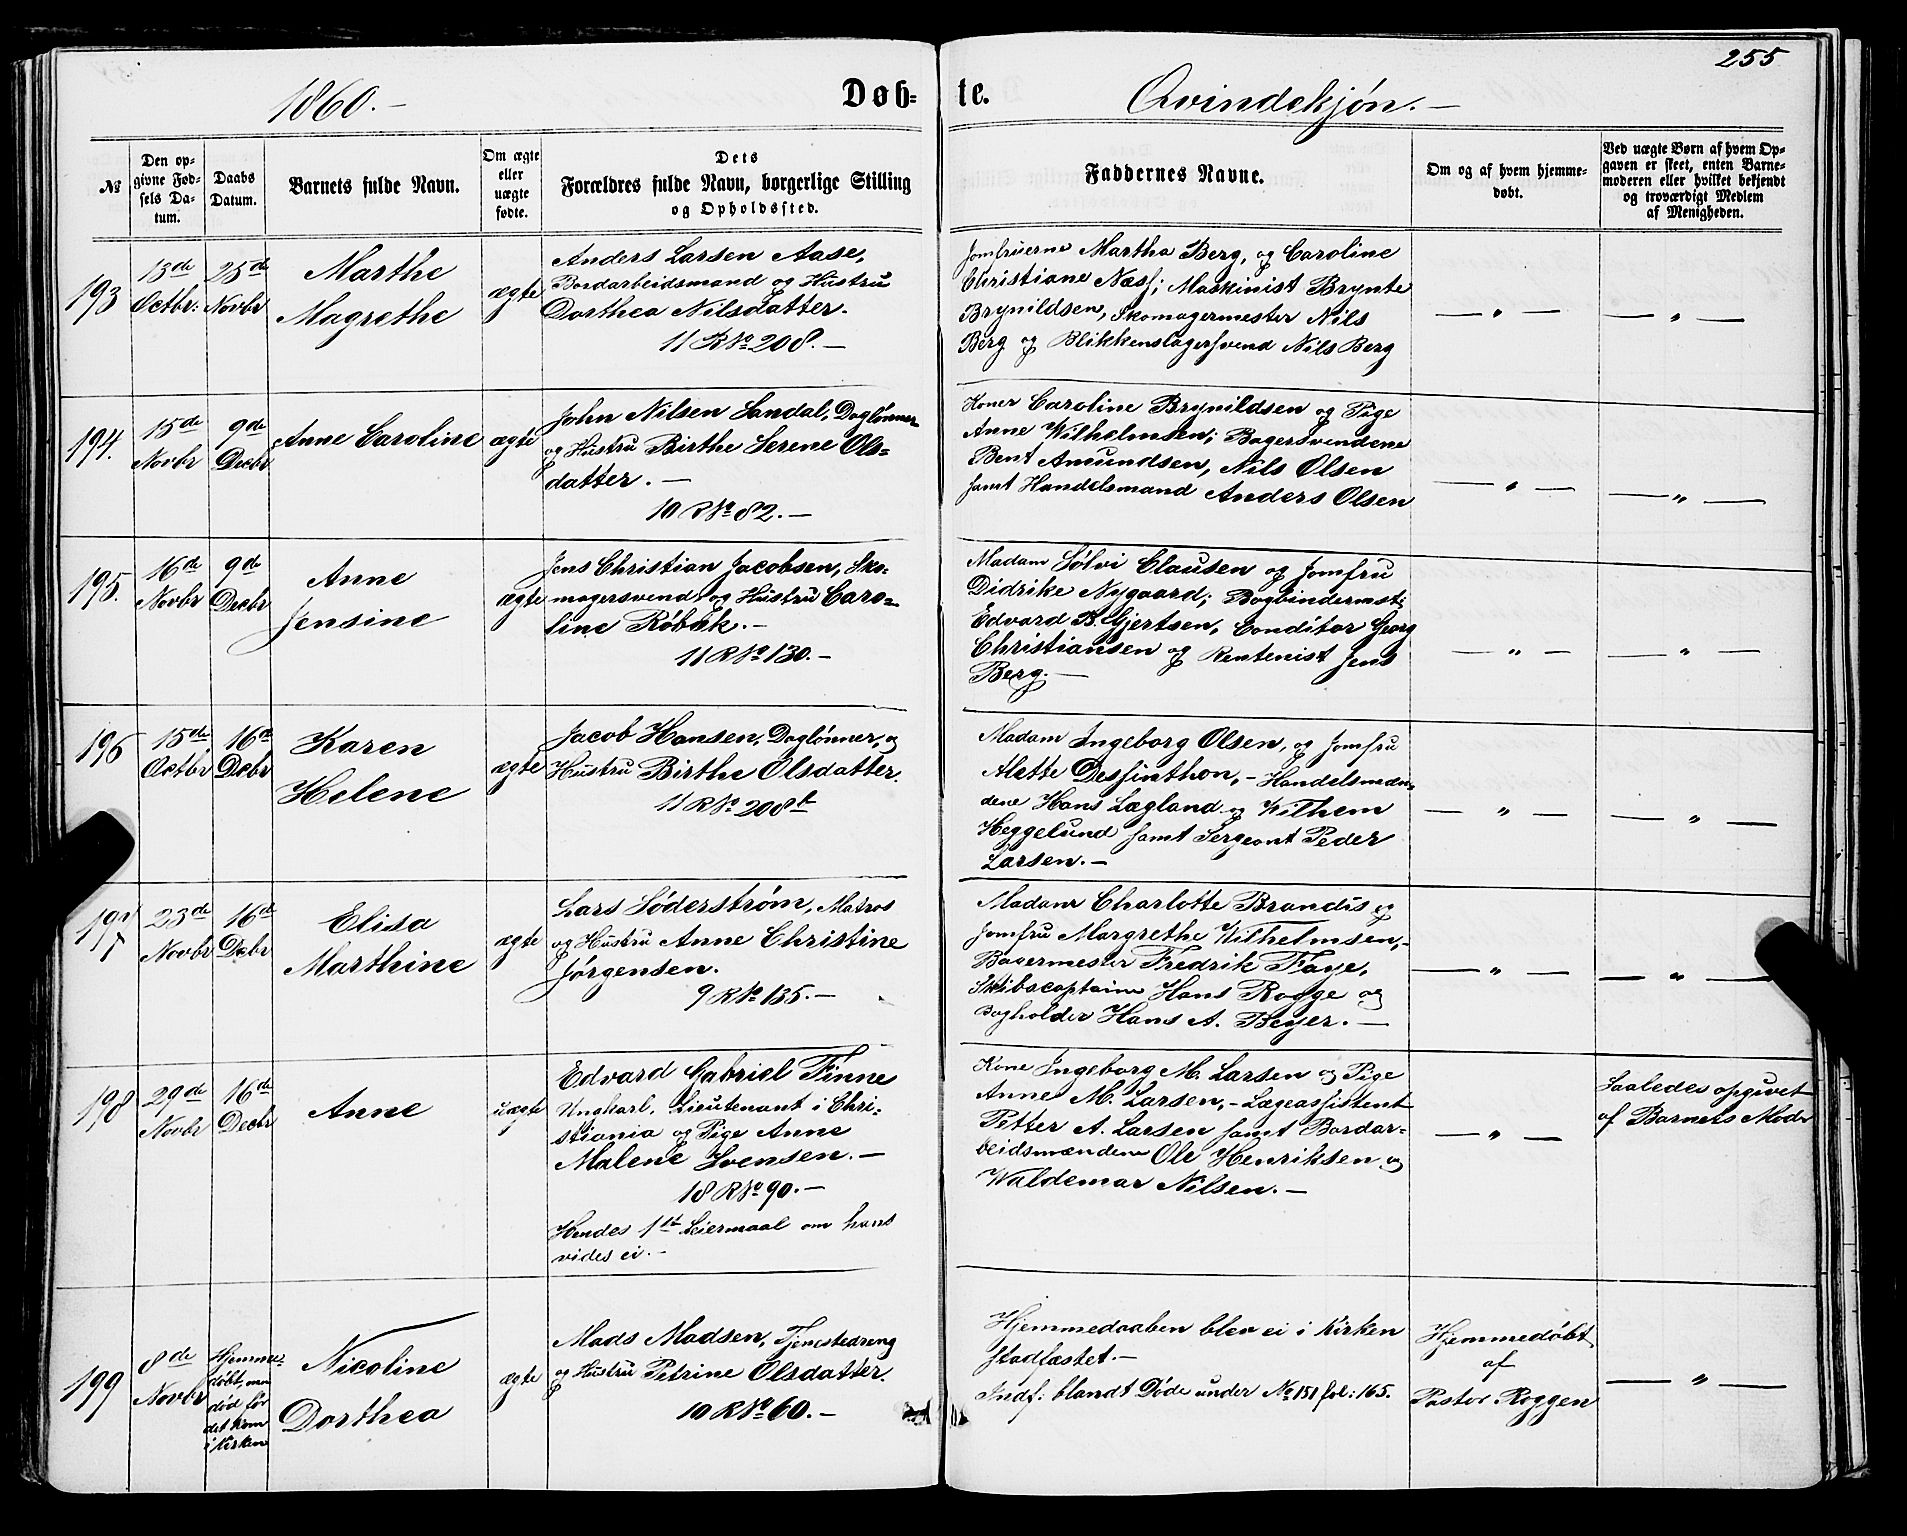 255
1860.–
Døb-
te.
Qvindekjøn.–
№
Den op-
givne Fød-
sels Da-
tum.
Daabs
Datum.
Barnets fulde Navn.
Om ægte
eller
uægte
fødte.
Dets
Forældres fulde Navn, borgerlige Stilling
og Opholdssted.
Faddernes Navne.
Om og af hvem hjemme-
døbt.
Ved uægte Børn af hvem Op-
gaven er skeet, enten Barne-
moderen eller hvilket bekjendt
og troværdigt Medlem
af Menigheden.
193
13de
Octbr:
25de
Novbr
Marthe
Magrethe
ægte
Anders Larsen Aase,
Bordarbeidsmand og Hustru
Dorthea Nilsdatter.
11 R№ 208.–
Jomfruerne Martha Berg, og Caroline
Christiane Næss; Maskinist Brynte
Brynildsen, Skomagermester Nils
Berg og Blikkenslagersvend Nils Berg
— „ —
— „ —
194.
15de
Novbr
9de
Decbr
Anne Caroline
ægte
John Nilsen Sandal, Daglønner
og Hustru Birthe Serene Ols-
datter.–
10 R№ 82.–
Koner Caroline Brynildsen og Pige
Anne Wilhelmsen; Bagersvendene
Bent Amundsen, Nils Olsen
samt Handelsmand Anders Olsen
— „ —
— „ —
195.
16de
Novbr
9de
Decbr
Anne
Jensine
ægte
Jens Christian Jacobsen, Sko-
magersvend og Hustru Caro-
line Røbak.–
11 R№ 130.–
Madam Sølvi Clausen og Jomfru
Didrike Nygaard; Bogbindermst:
Edvard B. Gjertsen, Conditor Georg
Christiansen og Rentenist Jens
Berg.–
— „ —
— „ —
196
15de
Octbr
16de
Decbr
Karen
Helene
ægte
Jacob Hansen, Daglønner, og
Hustru Birthe Olsdatter.
11 R№ 208 b
Madam Ingeborg Olsen, og Jomfru
Alette Dessinthon,– Handelsmæn-
dene Hans Lægland og Wilhem
Heggelund samt Sergeant Peder
Larsen.–
— „ —
— „ —
197
23de
Novbr
16de
Decbr
Elisa
Marthine
ægte
Lars Söderstrøm, Matros
og Hustru Anne Christine
Jørgensen.
9 R№ 135.–
Madam Charlotte Brandis og
Jomfru Margrethe Wilhelmsen,–
Bagermester Fredrik Faye,
Skibscaptaine Hans Rogge og
Bogholder Hans A. Beyer.–
— „ —
— „ —
198
29de
Novbr
16de
Decbr
Anne
uægte
Edvard Gabriel Finne
Ungkarl, Lieutenant i Chri-
stiania og Pige Anne
Malene Svensen.–
18 R№ 90.–
Hendes 1st Leiermaal om hans
vides ei.–
Kone Ingeborg M. Larsen og Pige
Anne M. Larsen,– Lægeassistent
Petter A. Larsen samt Bordar-
beidsmændene Ole Henriksen og
Waldemar Nilsen.–
— „ —
Saaledes opgivet
af Barnets Moder
199
8de
Novbr
Hjemme-
døbt, men
død før
det kom
i Kirken
Nicoline
Dorthea
ægte
Mads Madsen, Tjenestedreng
og Hustru Petrine Olsdatter.
10 R№ 60.–
Hjemmedaaben blev ei i Kirken
stadfæstet.–
Indf: blandt Døde under № 151 fol: 165.
Hjemmedøbt
af
Pastor Roggen
— „ —